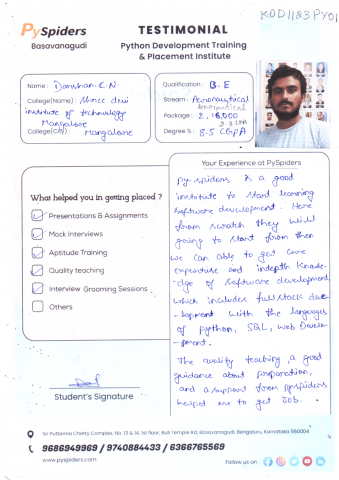 KOD1183PYD1
PySpiders
Basavanagudi
TESTIMONIAL
Python Development Training
& Placement Institute
Name : Darshan C.N
College(Name) : Shree devi
institute of technology
Mangalore
College(City) : Mangalore
Qualification : B.E
Stream : Aeronautical
Package : 2,16,000
Degree % : 8.5 CGPA
What helped you in getting placed ?
Presentations & Assignments
Mock Interviews
Aptitude Training
Quality teaching
Interview Grooming Sessions
Others
Student's Signature
Your Experience at PySpiders
Py-spiders is a good
institute to start learning
software development. Here
from scratch they will
going to start from then
we can able to get core
expertise and indepth knowle-
-dge of software development
which includes full stack deve
-lopment with the languages
of python, SQL, web Develo-
-pment.
The quality teaching, a good
guidance about preparation,
and a support from pyspiders
helped me to get Job.
Sri Puttanna Chetty Complex, No. 13 & 14, 1st floor, Bull Temple Rd, Basavanagudi, Bengaluru, Karnataka 560004
9686949969 / 9740884433 / 6366765569
www.pyspiders.com
Follow us on :